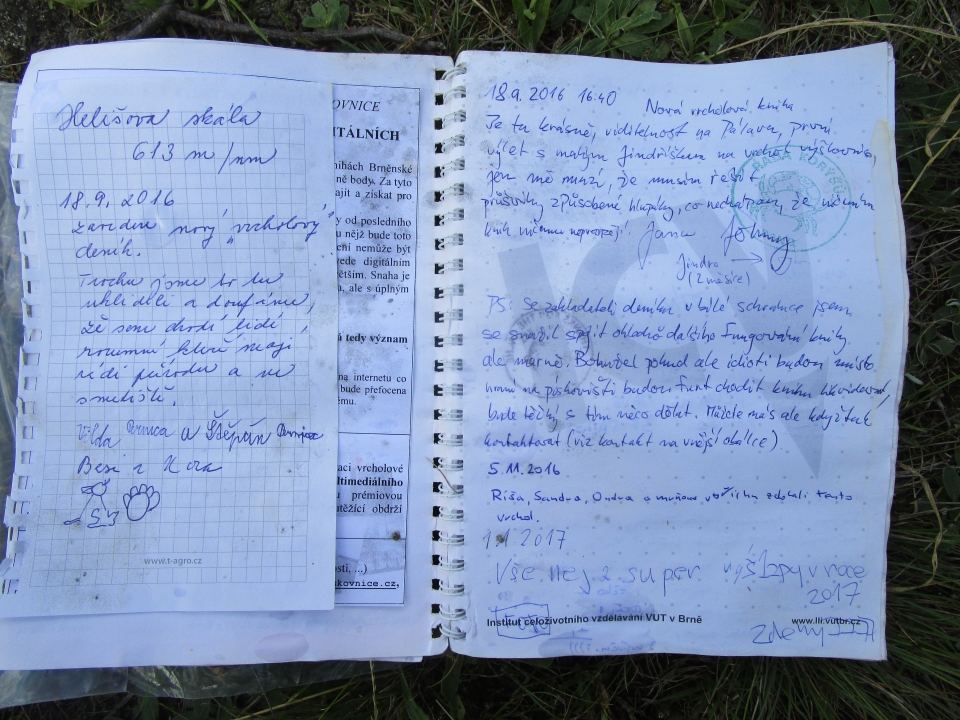 Helišova skála
613 m/nm
18.9.2016
zaveden nový "vrcholový"
deník.
Trochu jsme to tu
uklidili a doufáme,
že sem chodí lidé
rozumní kteří mají
rádi přírodu a ne
smetiště.
Vilda a Štěpán
Besi a Kora
www.t-agro.cz
OVNICE
ITÁLNÍCH
nihách Brněnské
ně body. Za tyto
ajít a získat pro
y od posledního
u nějž bude toto
ení nemůže být
vede digitálním
větším. Snaha je
, ale s úplným
á tedy význam
na internetu co
bude přefocena
ému.
aci vrcholové
ltimediálního
u prémiovou
těžící obdrží
osti, ...)
kovnice.cz,
18.9.2016 16:40
Nová vrcholová kniha
Je tu krásně, viditelnost na Pálavu, první
výlet s malým Jindříškem na vrchol výškovnice,
jen mě mrzí, že musím řešit
průšvihy způsobené hlupáky, co nechápou, že ničením
knih ničemu neprospějí. Jana
Jindra
(2 měsíce)
PS: Se zakladateli deníku v bílé schránce jsem
se snažil spojit ohledně dalšího fungování knihy,
ale marně. Bohužel pokud ale idioti budou místo
hraní na pískovišti budou furt chodit knihu likvidovat,
bude těžký s tím něco dělat. Můžete nás ale kdyžtak
kontaktovat (viz kontakt na vnější obálce)
5.11.2016
Ríša, Sandra, Ondra a všichni zdolali tento
vrchol.
1.1.2017
Vše nej a super výšlapy v roce
2017
Institut celoživotního vzdělávání VUT v Brně
www.lli.vutbr.cz